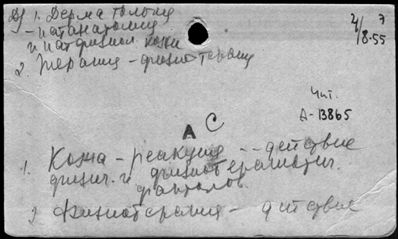 1. Дерматология
- патанатомия
и патфизиол кожи
2. Терапия - физиотерапия
7
2/8-55
Чит.
А-13865
А С
1. Кожа - реакция -- действие
физич. и физиотерапевтич.
факторов.
2. Физиотерапия - действие